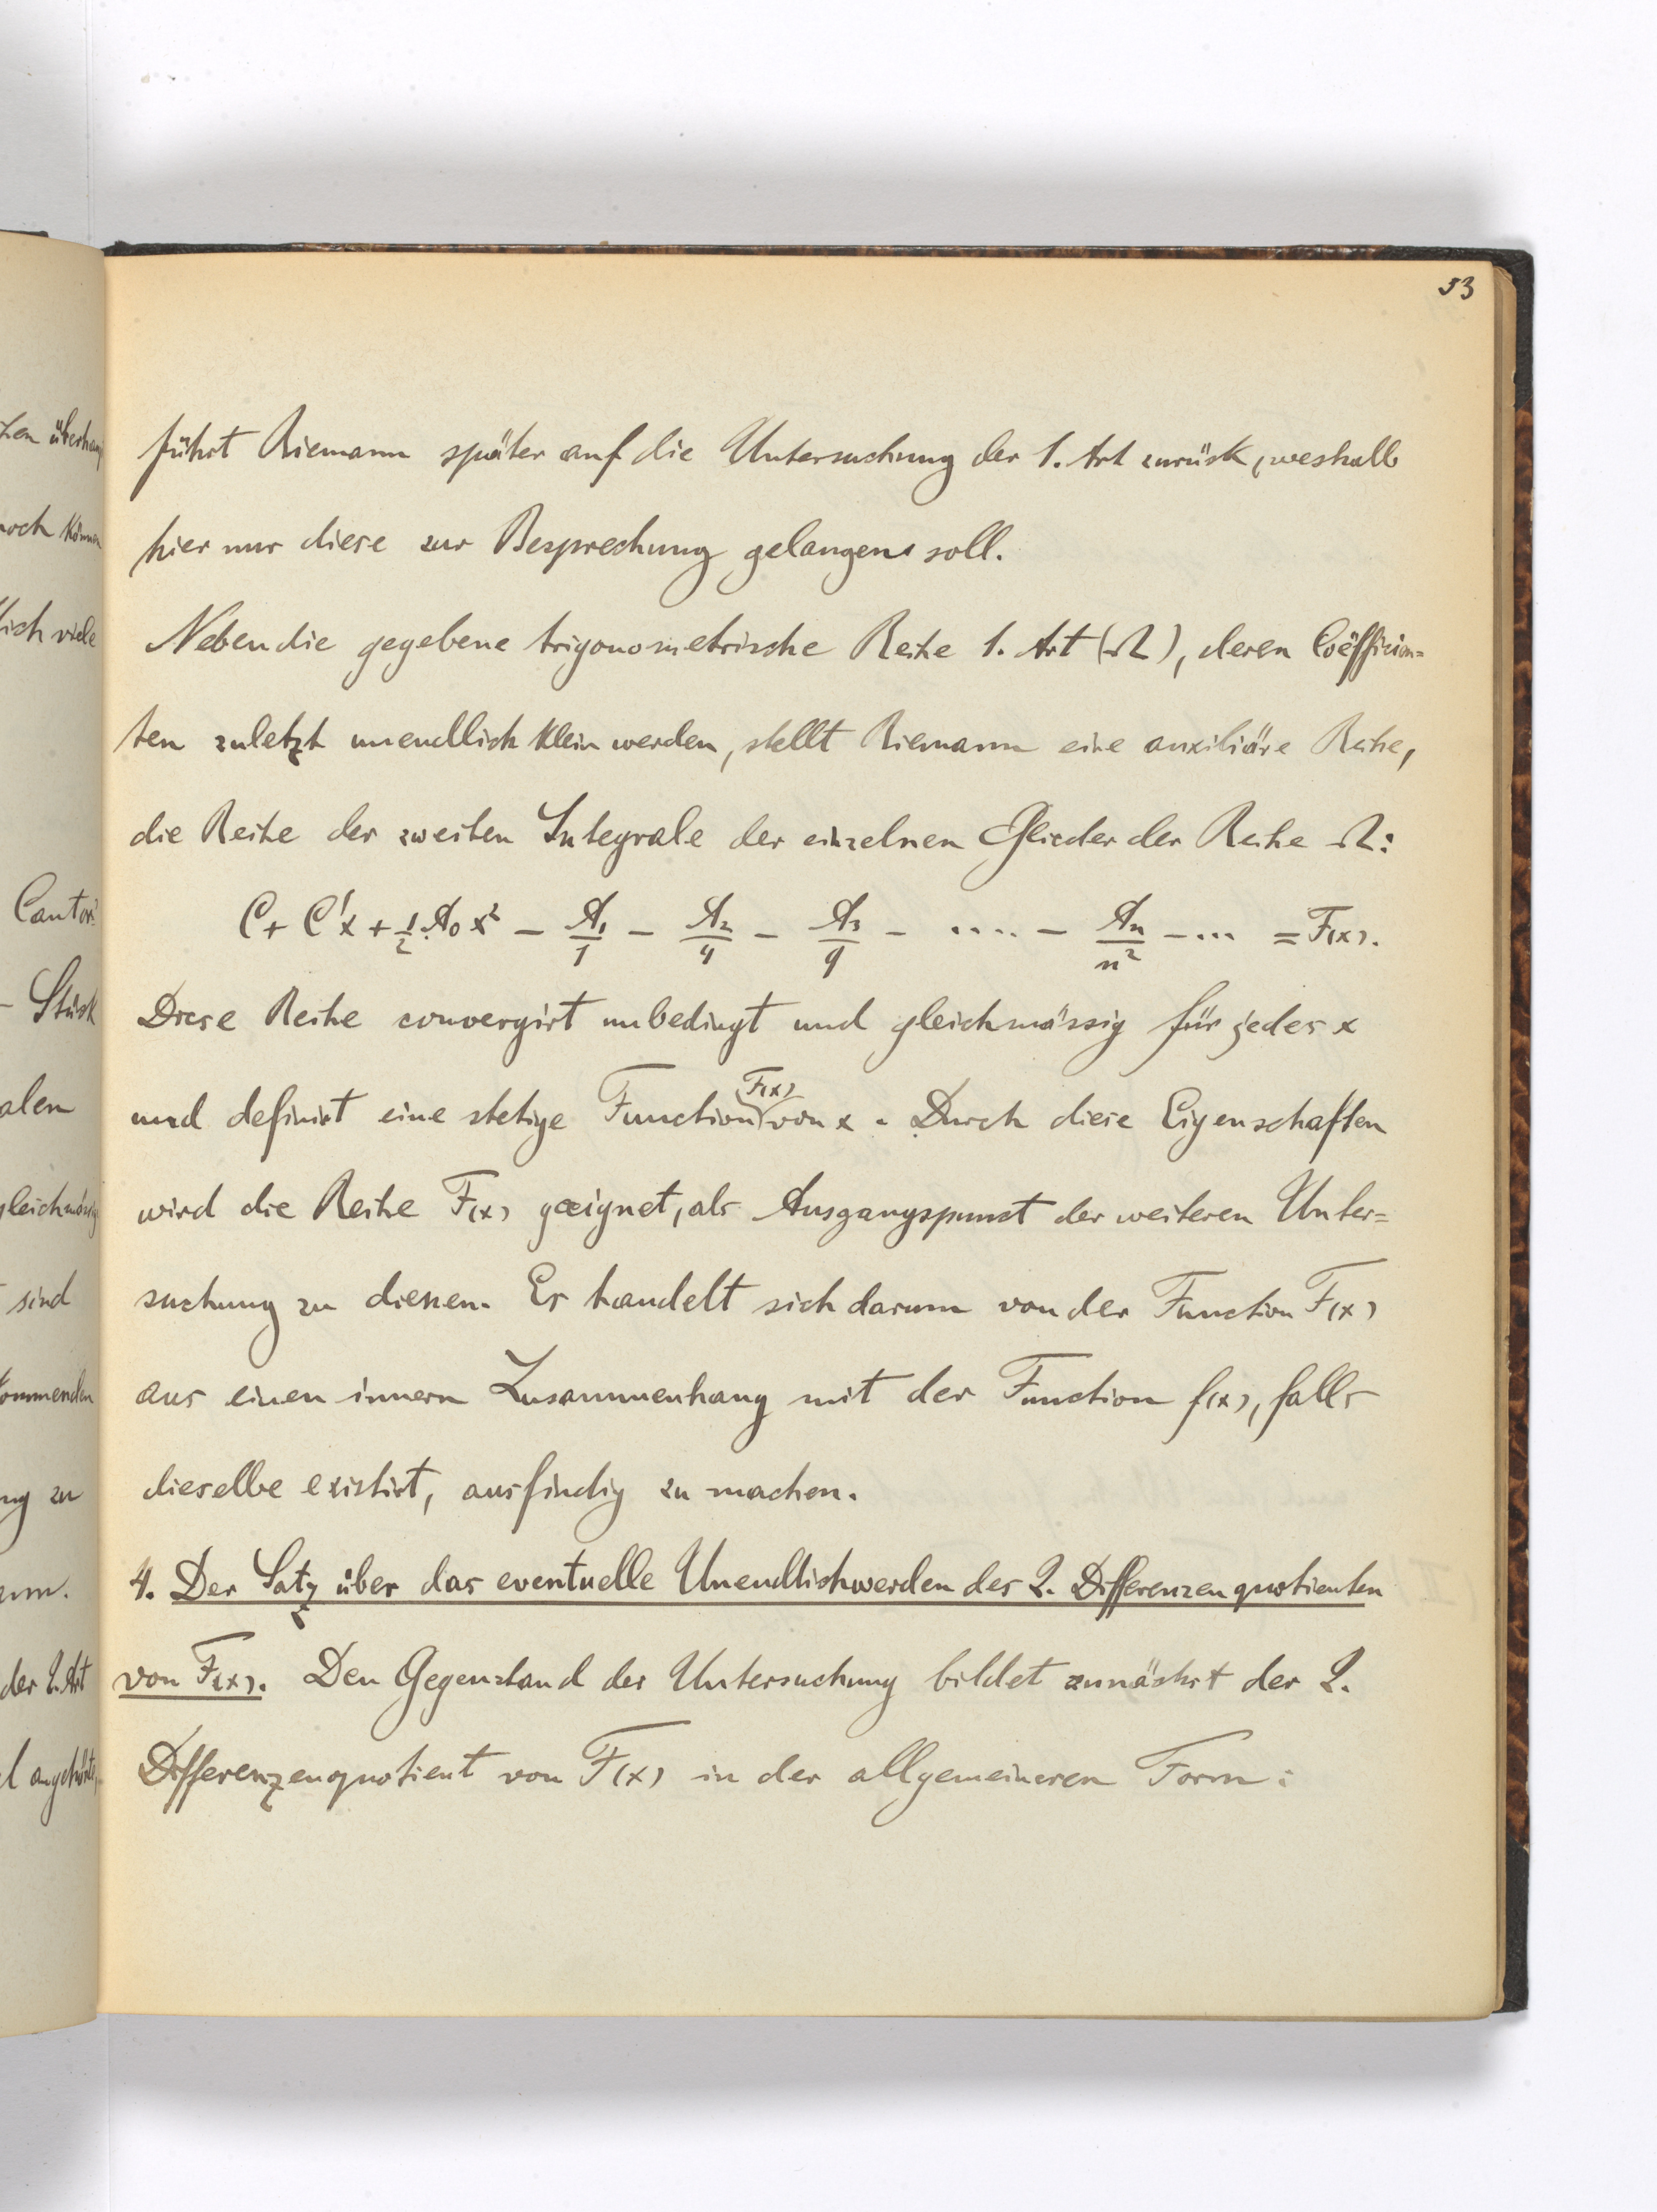 53
führt Riemann später auf die Untersuchung der 1. Art zurück, weshalb
hier nur diese zur Besprechung gelangen soll.
Neben die gegebene trigonometrische Reihe 1. Art (Ω), deren Coëfficien=
ten zuletzt unendlich klein werden, stellt Riemann eine auxiliäre Reihe,
die Reihe der zweiten Integrale der einzelnen Glieder der Reihe Ω:
C + C'x + 1/2 A₀ x² − A₁/1 − A₂/4 − A₃/9 − .... − Aₙ/n² − ... = F(x).
Diese Reihe convergirt unbedingt und gleichmässig für jedes x
und definirt eine stetige Function F(x) von x. Durch diese Eigenschaften
wird die Reihe F(x) geeignet, als Ausgangspunct der weiteren Unter=
suchung zu dienen. Es handelt sich darum von der Function F(x)
aus einen innern Zusammenhang mit der Function f(x), falls
dieselbe existirt, ausfindig zu machen.
4. Der Satz über das eventuelle Unendlichwerden des 2. Differenzenquotienten
von F(x). Den Gegenstand der Untersuchung bildet zunächst der 2.
Differenzenquotient von F(x) in der allgemeineren Form:
noch können
lich viele
Cantor
Stück
alen
gleichmässig
sind
kommenden
ng zu
der 2. Art